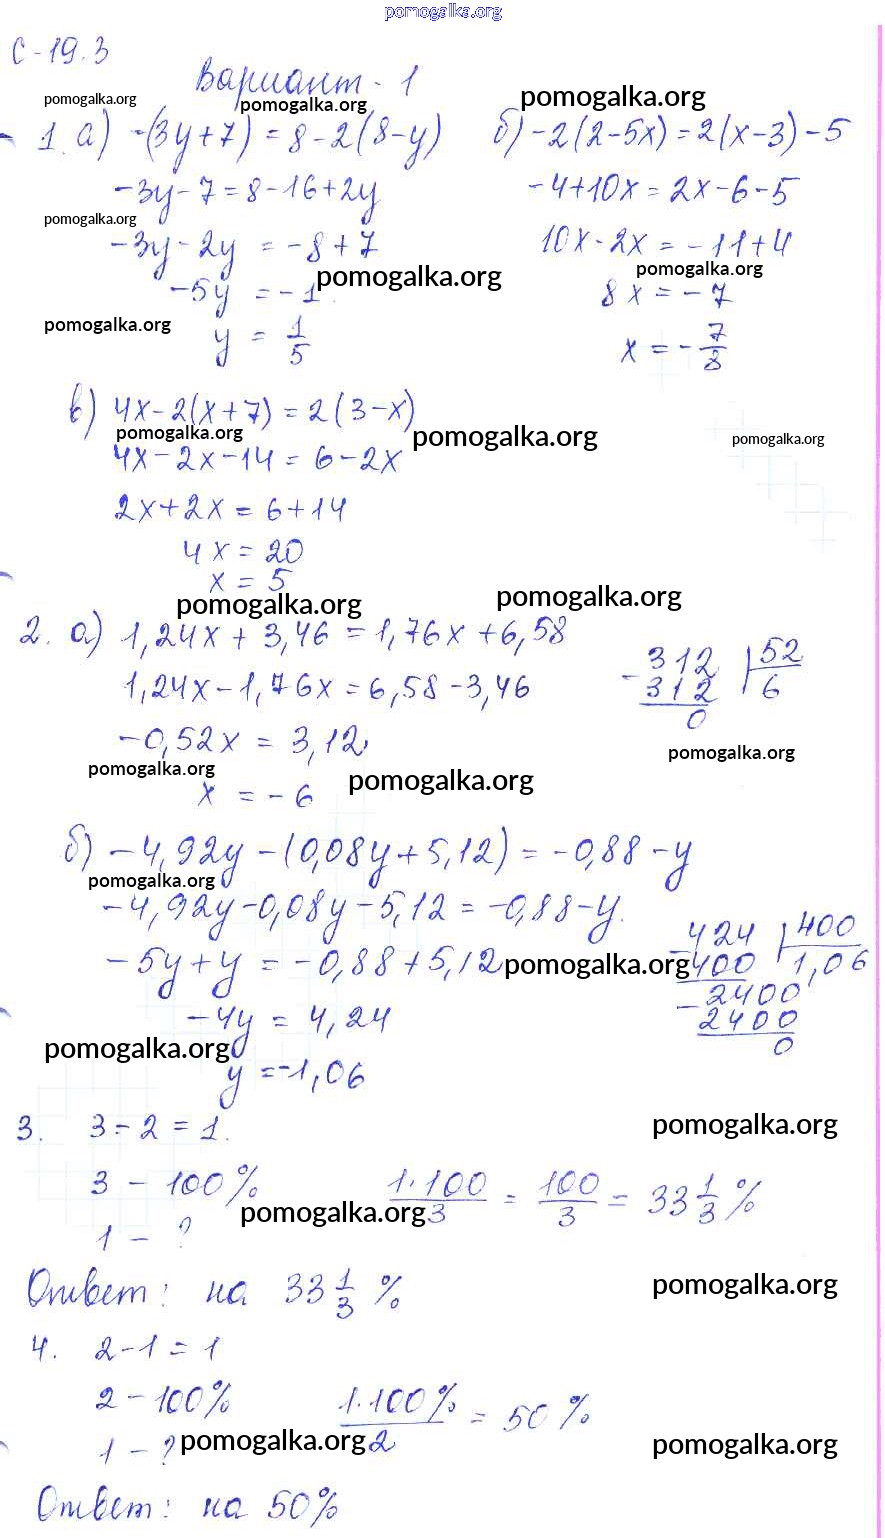 pomogalka.org
С-19.3
Вариант-1
pomogalka.org pomogalka.org pomogalka.org
1. а) -(3y+7) = 8-2(8-y)
-3y-7=8-16+2y
pomogalka.org
-3y-2y = -8+7
-5y = -1 pomogalka.org
pomogalka.org
y = 1/5
б) -2(2-5x)=2(x-3)-5
-4+10x=2x-6-5
10x-2x=-11+4
pomogalka.org
8x=-7
x=-7/8
в) 4x-2(x+7)=2(3-x)
pomogalka.org pomogalka.org pomogalka.org
4x-2x-14=6-2x
2x+2x=6+14
4x=20
x=5
pomogalka.org pomogalka.org
2. а) 1,24x+3,46=1,76x+6,58
1,24x-1,76x=6,58-3,46
-0,52x=3,12
pomogalka.org pomogalka.org
x = -6
-312 52
312 6
0
pomogalka.org
б) -4,92y-(0,08y+5,12)=-0,88-y
pomogalka.org
-4,92y-0,08y-5,12=-0,88-y.
-5y+y=-0,88+5,12 pomogalka.org
-4y=4,24
pomogalka.org
y=-1,06
-424 400
400 1,06
-2400
2400
0
3. 3-2=1.
pomogalka.org
3-100%
1·100/3 = 100/3 = 33 1/3 %
pomogalka.org
1-?
Ответ: на 33 1/3 %
pomogalka.org
4. 2-1=1
2-100%
1·100%/2 = 50%
1-? pomogalka.org pomogalka.org
Ответ: на 50%